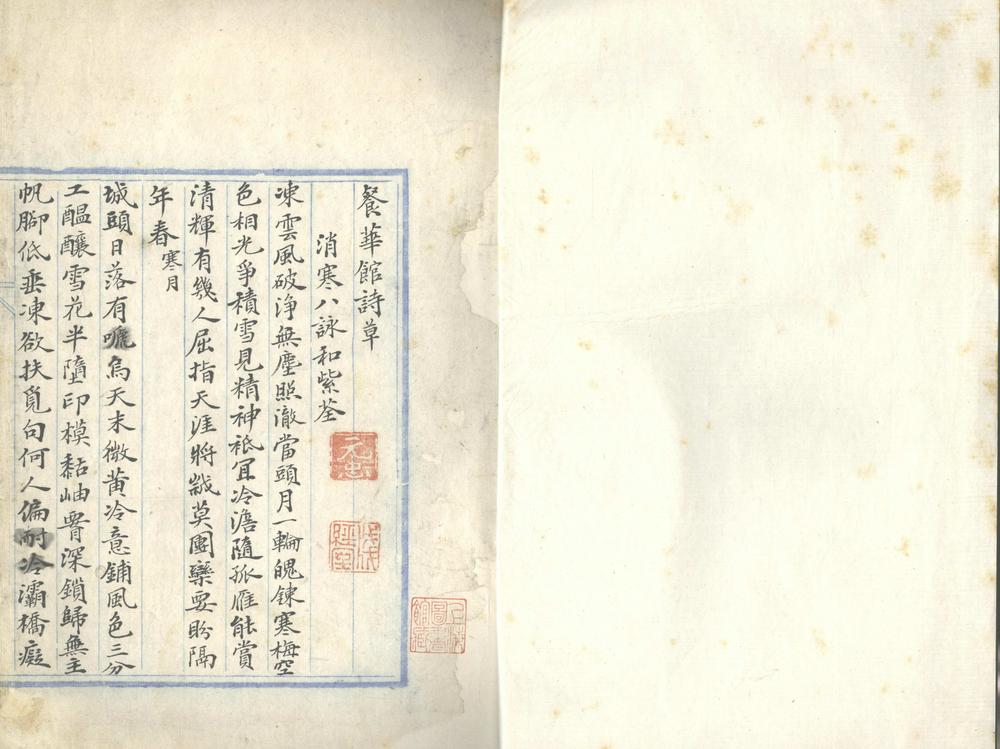 餐華館詩草
消寒八詠和紫荃
凍雲風破淨無塵照澈當頭月一輪魄鍊寒梅空
色相光爭積雪見精神祗宜冷澹隨孤雁能賞
清輝有幾人屈指天涯將戢莫團欒要盼隔
年春寒月
城頭日落有嗁烏天末微黃冷意鋪風色三分
工醞釀雪花半墮印模黏岫痕深鎖歸無主
帆腳低垂凍欲扶覓句何人偏耐冷灞橋癡
元忠